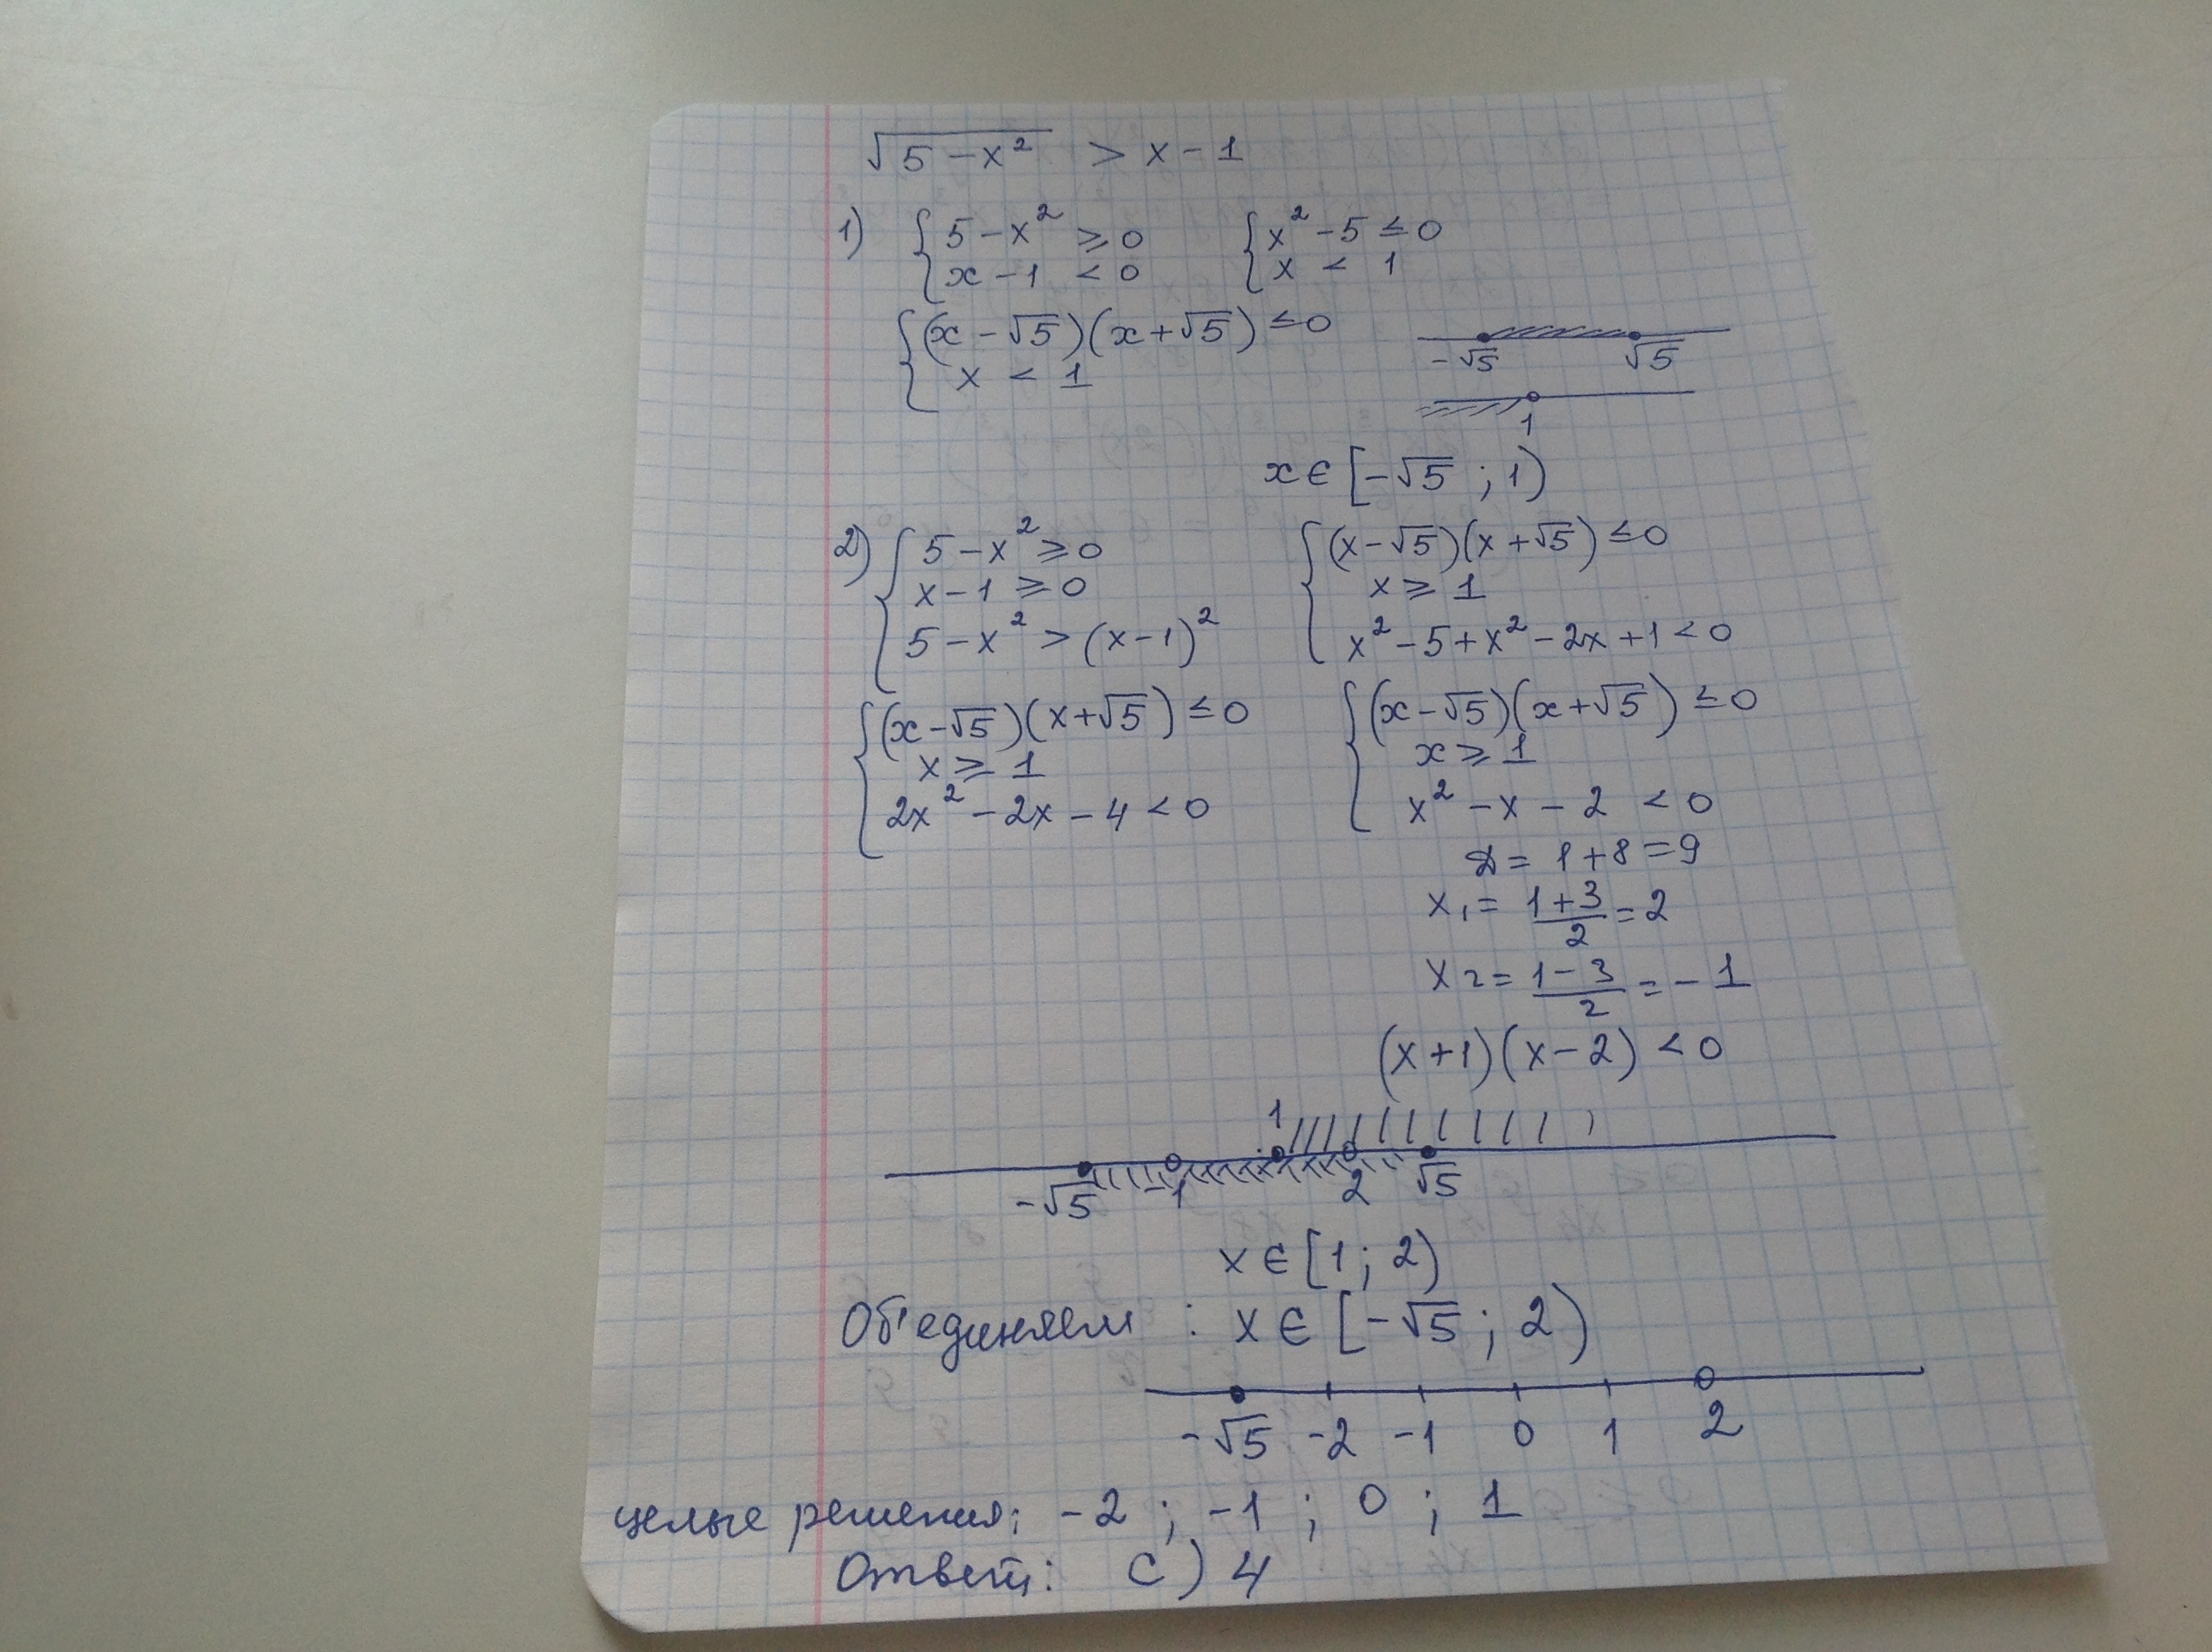 √(5 − x²) > x − 1
1) { 5 − x² ⩾ 0 { x² − 5 ≤ 0
x − 1 < 0 x < 1
{ (x − √5)(x + √5) ≤ 0
x < 1
−√5 √5
1
x ∈ [−√5 ; 1)
2) { 5 − x² ⩾ 0 { (x − √5)(x + √5) ≤ 0
x − 1 ⩾ 0 x ⩾ 1
5 − x² > (x − 1)² x² − 5 + x² − 2x + 1 < 0
{ (x − √5)(x + √5) ≤ 0 { (x − √5)(x + √5) ≤ 0
x ⩾ 1 x ⩾ 1
2x² − 2x − 4 < 0 x² − x − 2 < 0
D = 1 + 8 = 9
x₁ = (1 + 3)/2 = 2
x₂ = (1 − 3)/2 = − 1
(x + 1)(x − 2) < 0
1
−√5 −1 2 √5
x ∈ [1 ; 2)
Об'единяем : x ∈ [−√5 ; 2)
−√5 −2 −1 0 1 2
целые решения: −2 ; −1 ; 0 ; 1
Ответ: C) 4